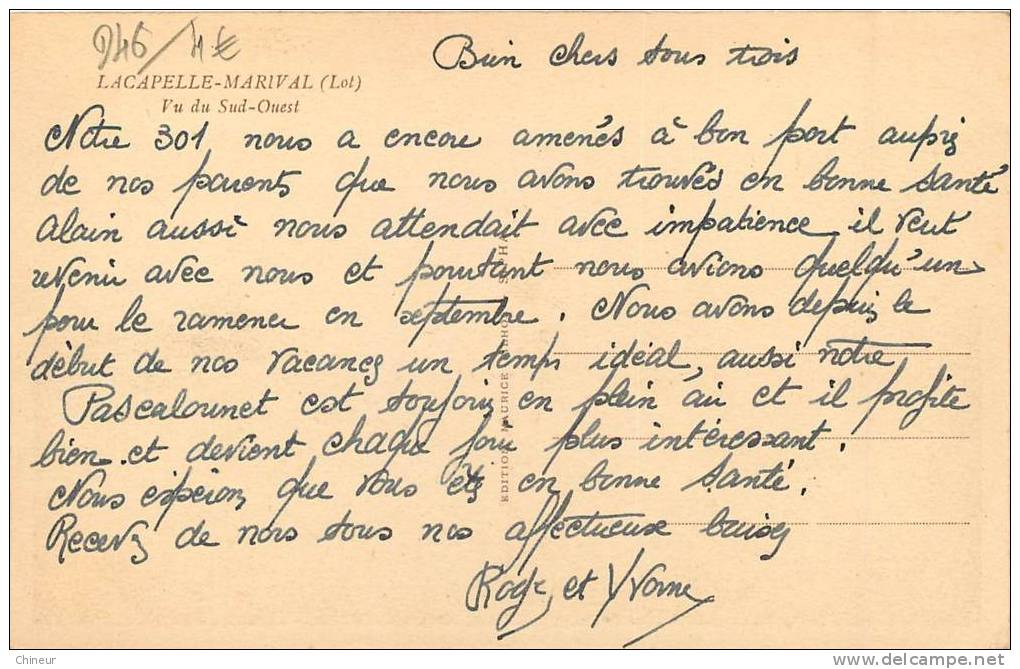 946 / 4€
Bien chers tous trois
LACAPELLE-MARIVAL (Lot)
Vu du Sud-Ouest
Notre 301 nous a encore amenés à bon port auprès
de nos parents que nous avons trouvés en bonne santé
Alain aussi nous attendait avec impatience il veut
revenir avec nous et pourtant nous avions quelqu'un
pour le ramener en septembre. Nous avons depuis le
début de nos vacances un temps idéal, aussi notre
Pascalounet est toujours en plein air et il profite
bien et devient chaque jour plus intéressant.
Nous espérons que vous êtes en bonne santé.
Recevez de nous tous nos affectueux baisers
Roger et Yvonne
EDITION MAURICE
Chineur
delcampe.net